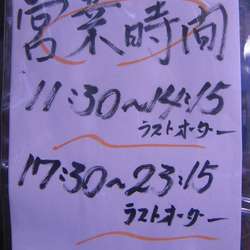 営業時間
11:30~14:15
ラストオーダー
17:30~23:15
ラストオーダー